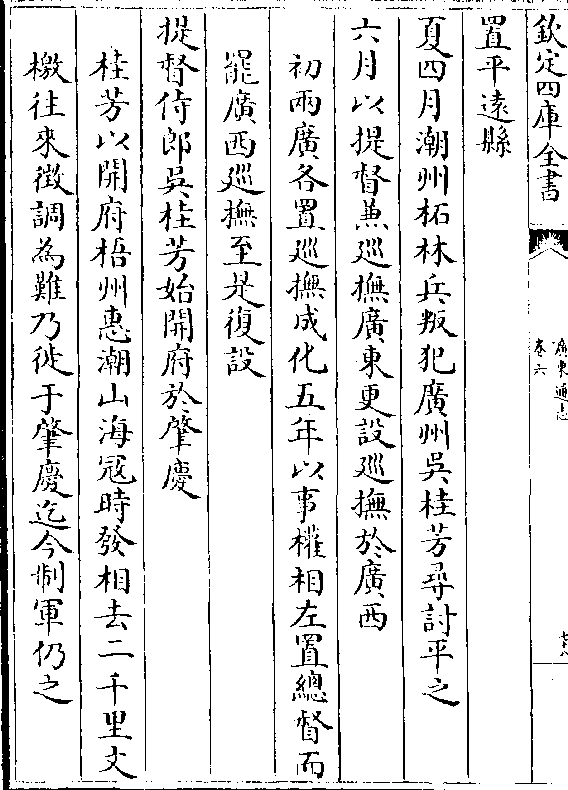 欽定四庫全書
廣東通志
卷六
置平遠縣
夏四月潮州柘林兵叛犯廣州吳桂芳尋討平之
六月以提督兼巡撫廣東更設巡撫於廣西
初兩廣各置巡撫成化五年以事權相左置總督而
罷廣西巡撫至是復設
提督侍郎吳桂芳始開府於肇慶
桂芳以開府梧州惠潮山海冦時發相去二千里文
檄往來徵調為難乃徙于肇慶迄今制軍仍之